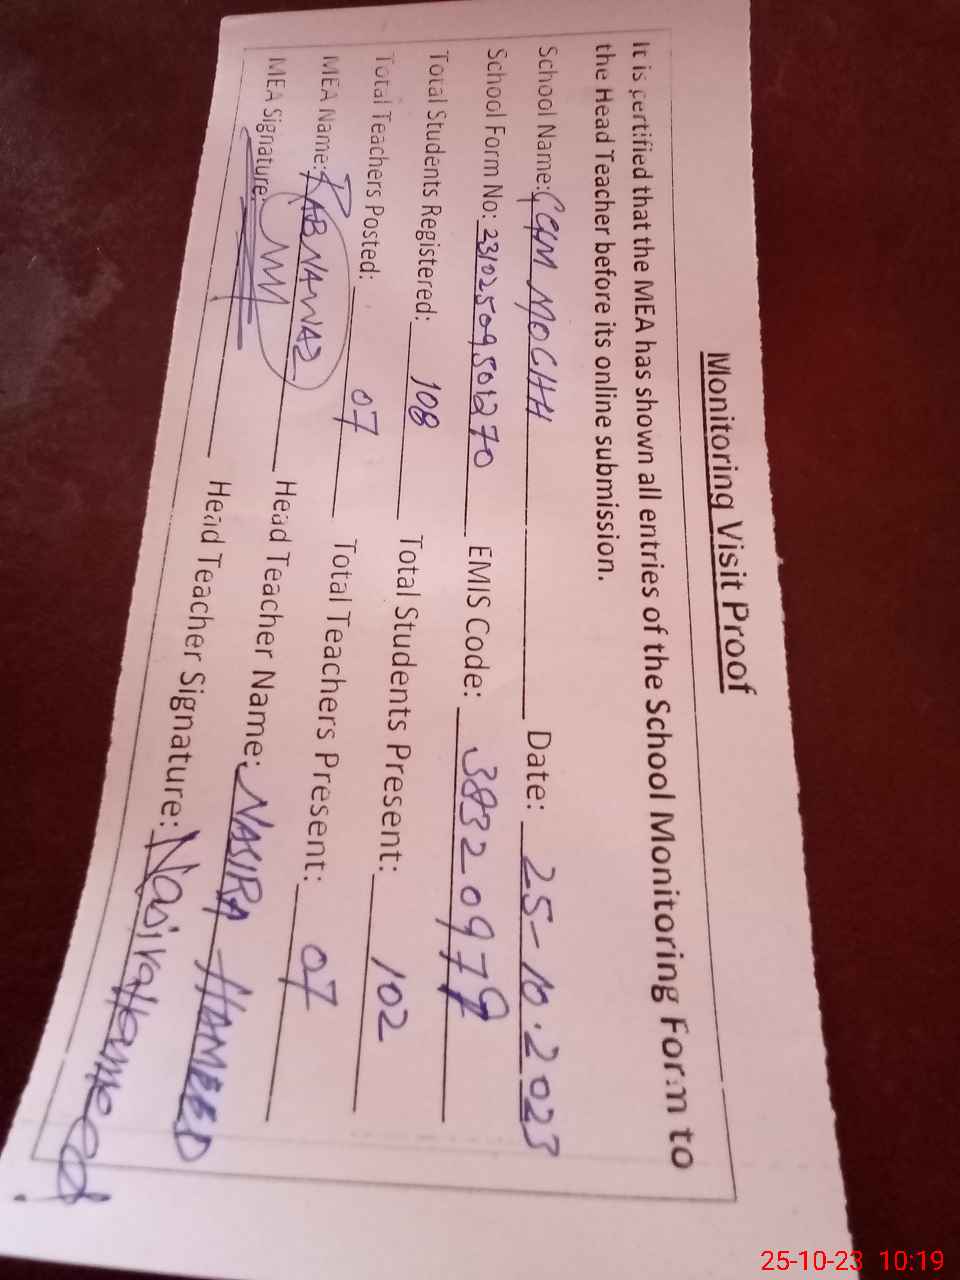 Monitoring Visit Proof
It is certified that the MEA has shown all entries of the School Monitoring Form to
the Head Teacher before its online submission.
School Name: MOCHH Date: 25-10.2023
School Form No: 23102509501270 EMIS Code: 3832097
Total Students Registered: 108 Total Students Present: 102
Total Teachers Posted: 07 Total Teachers Present: 07
MEA Name: RAB NAWAZ Head Teacher Name: NASIRA HAMEED
MEA Signature: Head Teacher Signature: Nasira Hameed
25-10-23 10:19